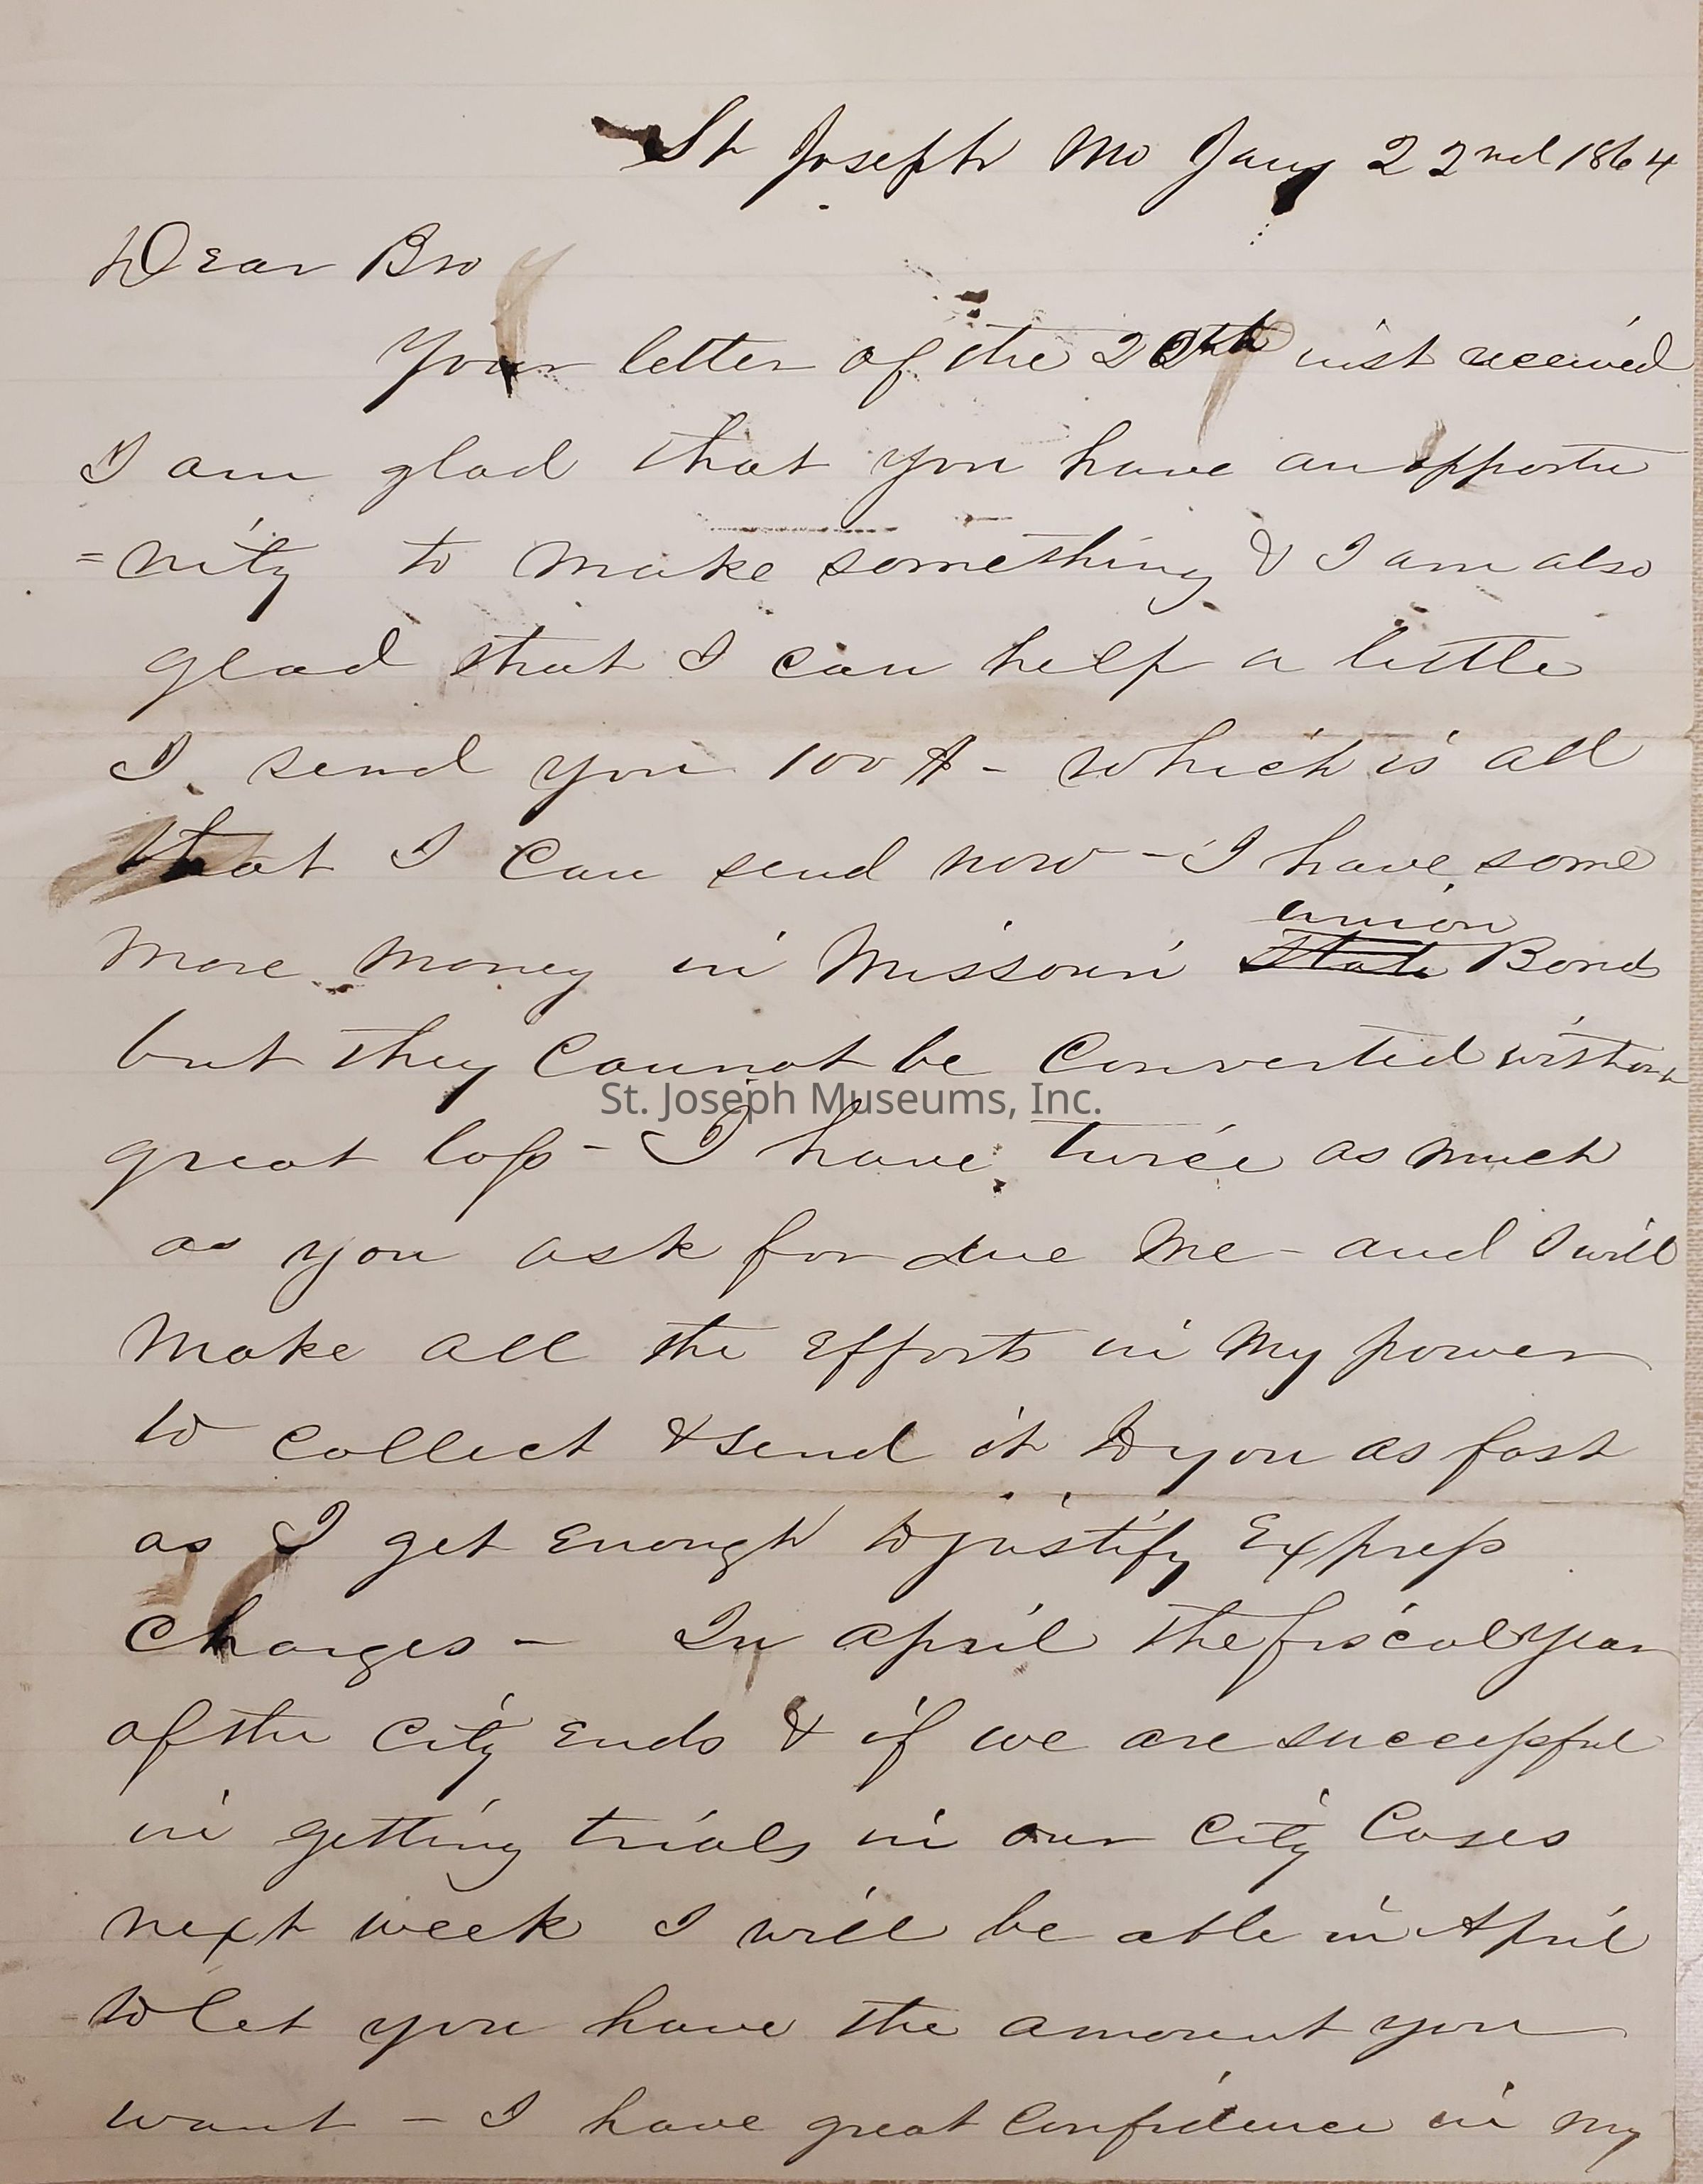 St Joseph Mo Jany 22nd 1864
Dear Bro
Your letter of the 20th inst received
I am glad that you have an opportu
=nity to make something & I am also
glad that I can help a little
I send you 100 $ - which is all
that I can send now - I have some
union
more money in Missouri State Bonds
but they cannot be converted without
St. Joseph Museums, Inc.
great loss - I have twice as much
as you ask for due me - and I will
make all the Efforts in my power
to collect & send it to you as fast
as I get Enough to justify Express
Charges - In april the fiscal year
of the City Ends & if we are successful
in getting trials in our City Cases
next week I will be able in April
to let you have the amount you
want - I have great Confidence in my